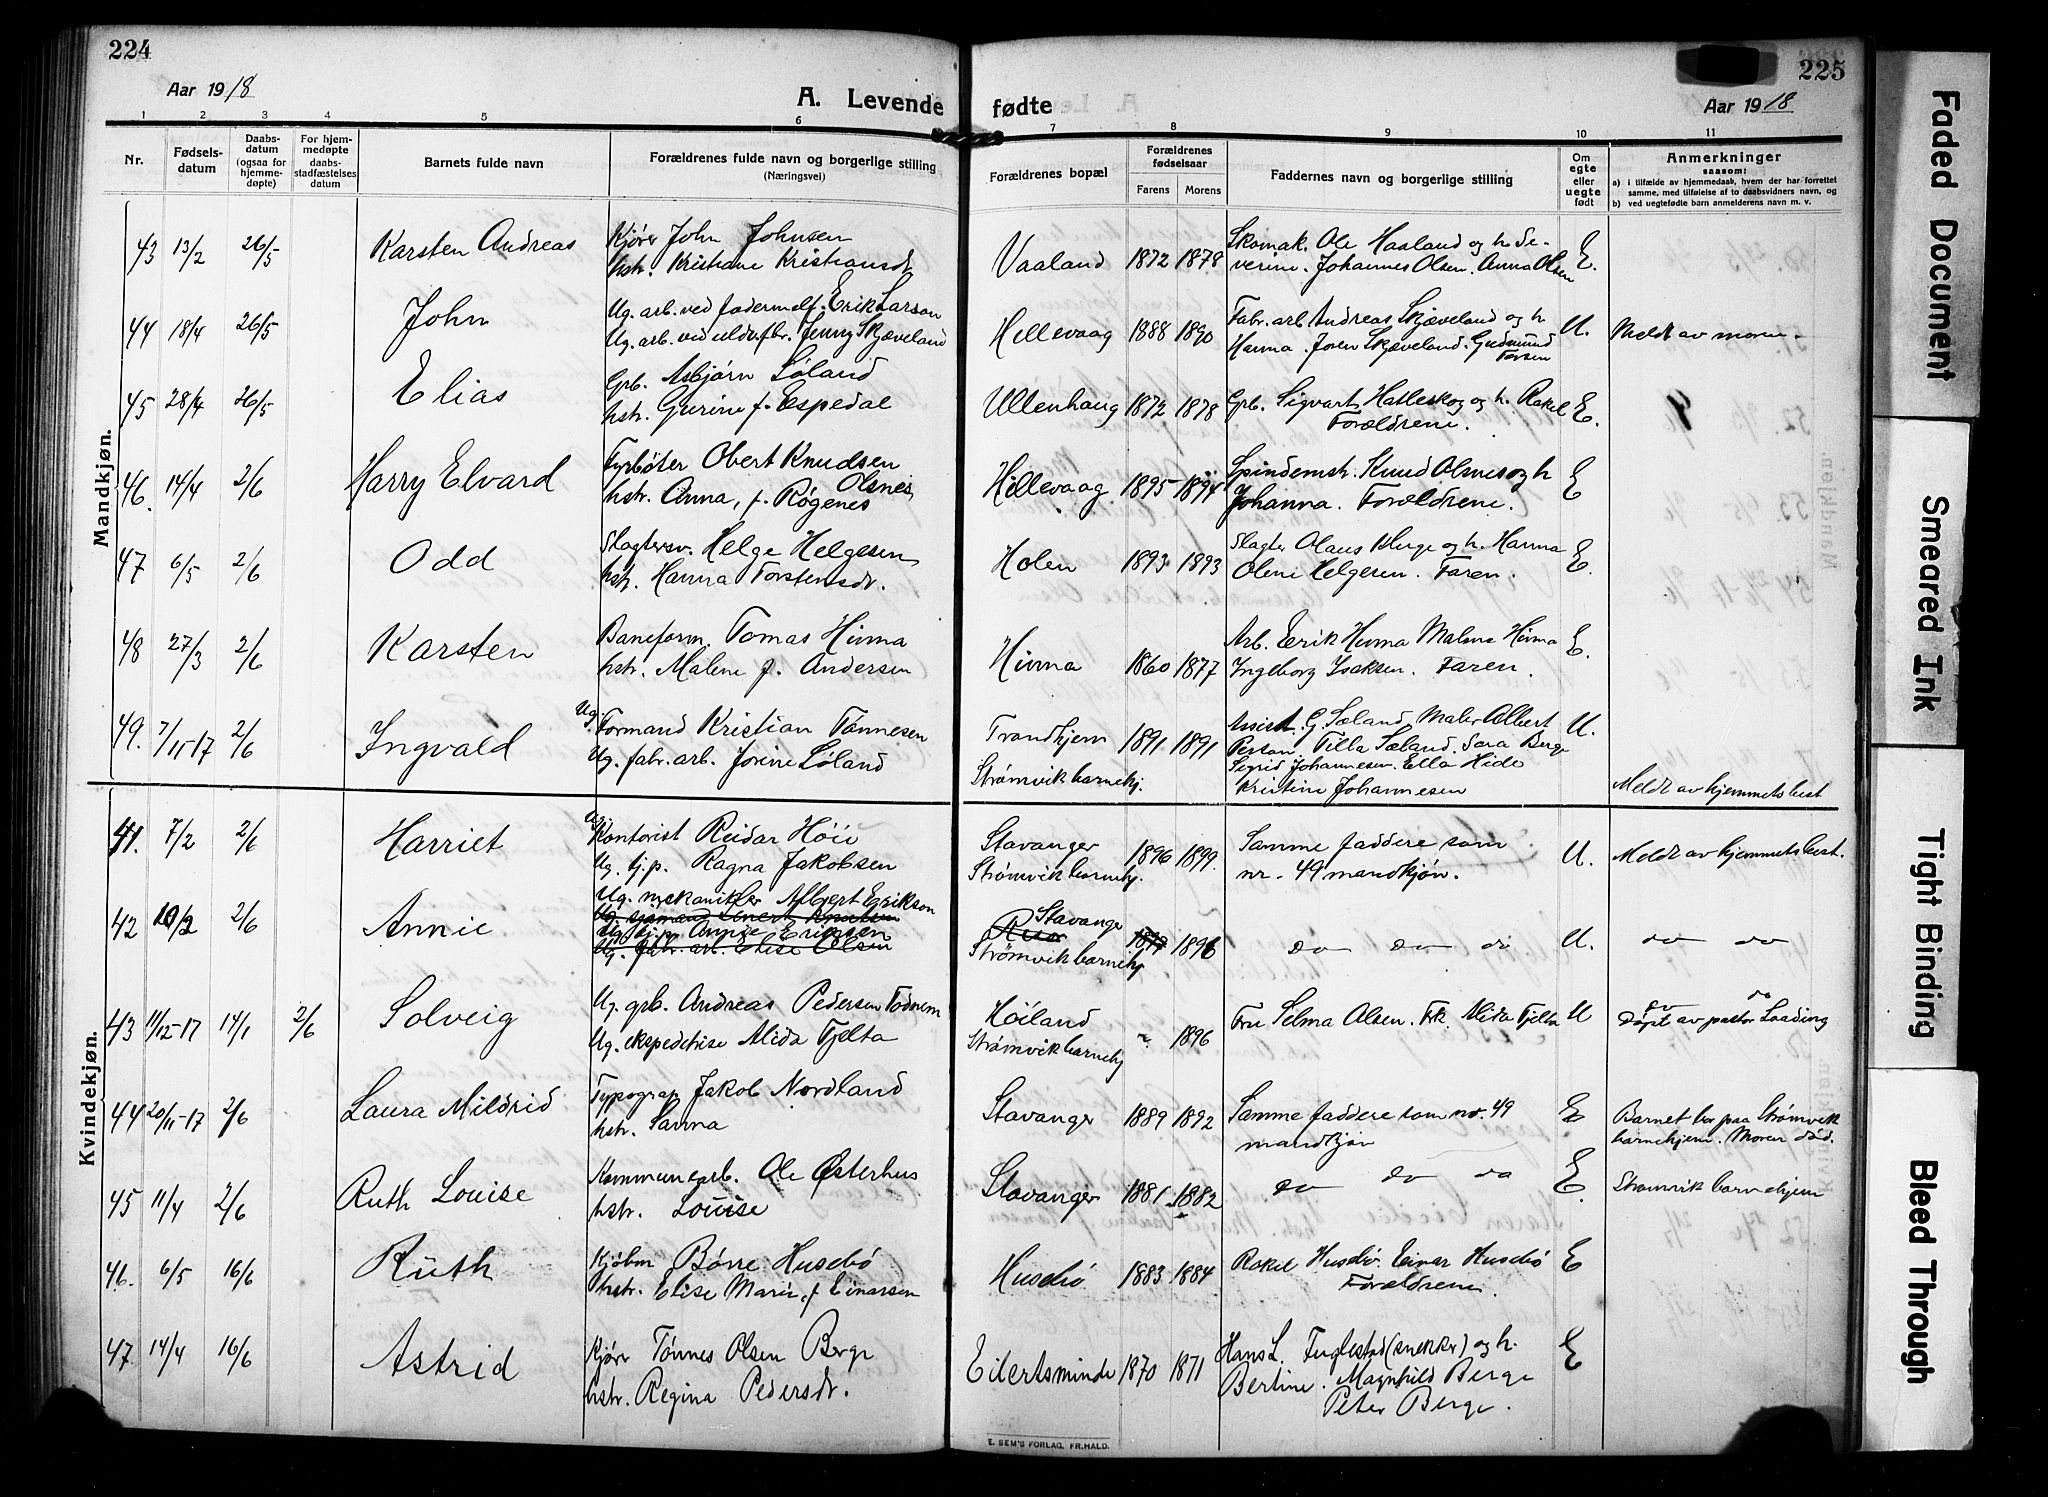 224
Aar 1918
A. Levende
1 2 3 4 5 6
Nr.
Fødsels-
datum
Daabs-
datum
(ogsaa for
hjemme-
døpte)
For hjem-
medøpte
daabs-
stadfæstelses
datum
Barnets fulde navn
Forældrenes fulde navn og borgerlige stilling
(Næringsvei)
Mandkjøn.
43 13/2 26/5 Karsten Andreas Kjører John Johnsen
hstr. Kristiane Kristiansdt
44 18/4 26/5 John Ug. arb. ved Erik Larson
Ug. arb. ved Jenny Skjæveland
45 28/4 26/5 Elias Grb. Asbjørn Løland
hstr. Gurine f. Espedal
46. 14/4 2/6 Harry Elvard Fyrbøter Obert Knudsen
Olsnes
hstr. Anna, f. Røgenes
47 6/5 2/6 Odd Slagtersv. Helge Helgesen
hstr. Hanna Torstensdt.
48 27/3 2/6 Karsten Baneform. Tomas Hinna
hstr. Malene f. Andersen
49. 7/11-17 2/6 Ingvald Ug. Formand Kristian Tønnesen
Ug. fabr. arb. Jorine Løland
Kvindekjøn.
41. 7/2 2/6 Harriet Ug. Kontorist Reidar Høie
Ug. tj.p. Ragna Jakobsen
42 10/2 2/6 Annie Ug. mekaniker Albert Erikson
Ug. sjømand Knutsen
Ug. tj.p. Annie Eriksen
Ug. fabr. arb. Elise Olsen
43 11/12-17 14/1 2/6 Solveig Ug. grb. Andreas Pedersen Todnem
Ug. ekspeditrise Alida Tjelta
44 20/11-17 2/6 Laura Mildrid Typograf Jakob Nordland
hstr. Sanna
45 11/4 2/6 Ruth Louise Kommunearb. Ole Østerhus
hstr. Louise
46. 6/5 16/6 Ruth Kjøbm Børre Husebø
hstr. Elise Marie, f Einarsen
47. 14/4 16/6 Astrid Kjører Tønnes Olsen Berge
hstr. Regina Pedersdt.
225
fødte
Aar 1918
7 8 9 10 11
Forældrenes bopæl
Forældrenes
fødselsaar
Farens
Morens
Faddernes navn og borgerlige stilling
Om
egte
eller
uegte
født
Anmerkninger
saasom:
a) i tilfælde av hjemmedaab, hvem der har forrettet
samme, med tilføielse af to daabsvidners navn, og
b) ved uegtefødte barn anmelderens navn m. v.
Vaaland 1872 1878 Skomak. Ole Haaland og h. Se-
verine. Johannes Olsen. Anna Olsen E.
Hillevaag 1888 1890 Fabr. arb. Andreas Skjæveland og h.
Hanna. Joren Skjæveland. Gudmund
Torsen U. Meldt av moren.
Ullenhaug 1872 1878 Grb. Sigvart Hatleskog og h. Rakel
Forældrene. E.
Hillevaag 1895 1894 Spindemstr. Knud Olsnes og h
Johanna. Forældrene. E
Holen 1893 1893 Slagter Olaus Berge og h. Hanna
Oline Helgesen. Faren. E.
Hinna 1860 1877 Arb. Eerik Hinna Malene Hinna
Ingeborg Isaksen. Faren. E.
Trondhjem
Strømvik barnehj. 1891 1891 Assist. G. Sæland. Maler Albert
Person. Tilla Sæland. Sara Berge
Sigrid Johannesen. Ella Hide
Kristine Johannesen U. Meldt av hjemmets best
Stavanger
Strømvik barnehj. 1896 1899. Samme faddere som
nr. 49 mandkjøn. U. Meldt av hjemmets best.
Stavanger
Strømvik barnehj 1897 1896 do do do U. do do
Høiland
Strømvik barnehj ~ 1896 Fru Selma Olsen. Frk. Alida Tjelta U do do
Døpt av pastor Loading
Stavanger 1889 1892 Samme faddere som nr. 49
mandkjøn E Barnet bor paa Strømvik
barnehjem. Moren død.
Stavanger 1881 1882 do do do E. Strømvik barnehjem
Husebø 1883 1884 Rakel Husebø. Einar Husebø
Forældrene. E
Eilertsminde 1870 1871 Hans L. Fuglestad (snekker) og h.
Bertine. Magnhild Berge
Peter Berge. E
E. SEM'S FORLAG, FR.HALD.
Faded Document
Smeared Ink
Tight Binding
Bleed Through